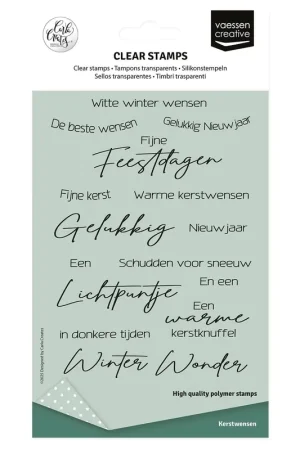 vaessen
creative
CLEAR STAMPS
Clear stamps • Tampons transparents • Silikonstempeln
Sellos transparentes • Timbri trasparenti
Witte winter wensen
De beste wensen
Gelukkig Nieuwjaar
Fijne
Feestdagen
Fijne kerst
Warme kerstwensen
Gelukkig
Nieuwjaar
Een
Schudden voor sneeuw
En een
Lichtpuntje
Een
warme
in donkere tijden
kerstknuffel
Winter Wonder
High quality polymer stamps
Kerstwensen